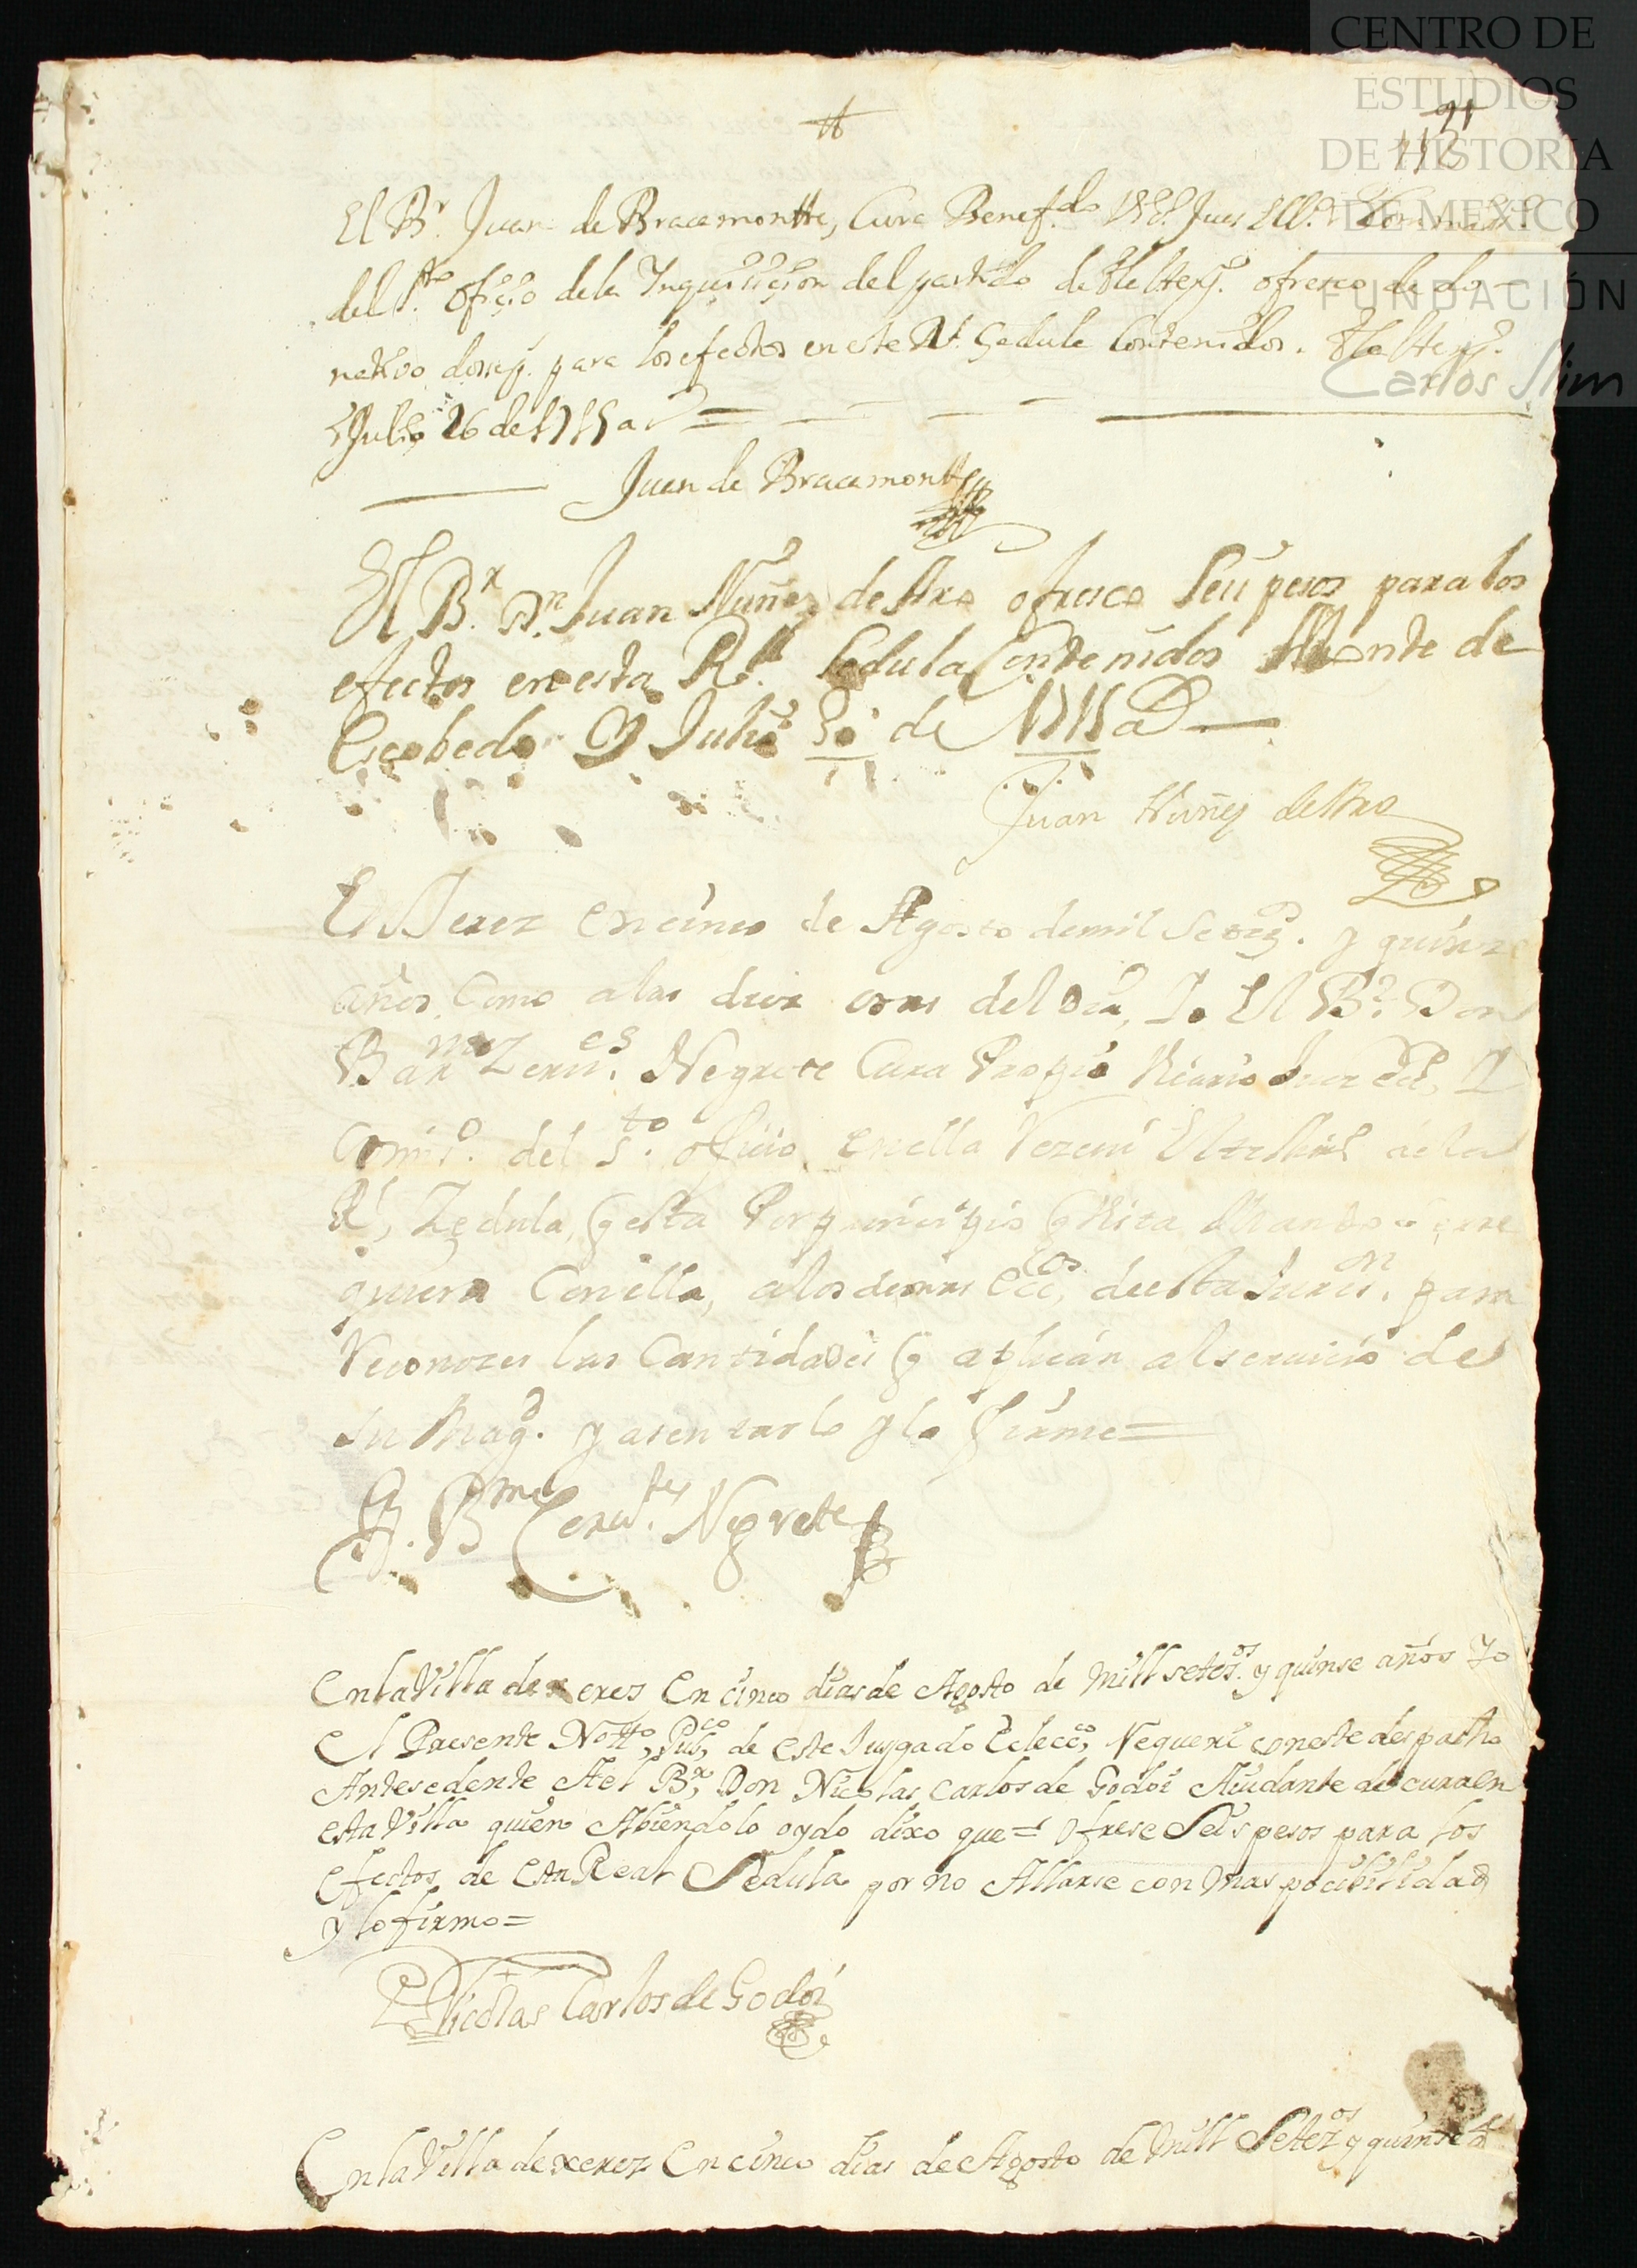 CENTRO DE
ESTUDIOS
DE HISTORIA
DE MEXICO
FUNDACIÓN
Carlos Slim
El Br. Juan de Bracamontte, Cura Benef.do
del S.to ofiçio de la Inquisiçion del partido de ofresco de do-
natiuo para los efectos en este Rl. Çedula Contenidos.
Julio 26 de 1715 a
Juan de Bracamontte
El Br. Dn. Juan Nuñez de Aro ofresco seis pesos para los
efectos en esta Rl. Cedula Contenidos Monte de
Escobedo Y Julio 30 de 1715 a
Juan Nuñez de Aro
En Jerez en cinco de Agosto de mil y quinze
años, Como a las diez oras del Dia, Yo El Br. Don
Barme Zerues. Negrete Cura Propio Vicario Juez
Comis.o del S.to ofiçio, en ella Rezeui
Rl, Zedula, q esta Por prinsipio q Vista
quiera Con ella, a los demas Eccos, de esta Jurison. para
Reconozer las Cantidades q aplican al seruicio de
Su Magd. y asentarlo y lo firme=
Br. Bme Cerutes. Negrete
En la Villa de xerez En cinco dias de Agosto de Mill seteos. y quinse años Yo
El Presente Notto, Puco, de este Jusgado Eclecco, Requeri con este despacho
Antesedente Ael Br, Don Nicolas Carlos de Godoi Aiudante de cura en
esta Villa quien Abiendolo oydo dixo que= Ofrese Seis pesos para los
Efectos de esta Real Sedula por no Allarse con mas pocibilidad
y lo firmo=
Nicolas Carlos de Godoi
En la Villa de xerez En cinco dias de Agosto de Mill Setezos y quinse